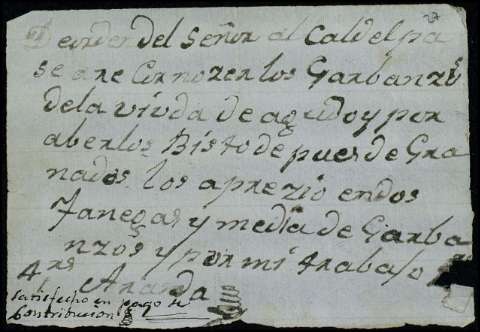 27
De orden del Señor al Calde l pa
se a re Cornozer los Garbanzos
de la viuda de agudo y por
aberlos Bisto de pues de Gra
nados los aprezio en dos
fanegas y media de Garba
nzos y por mi trabajo
4 rs Aranda
Satisfecho en pago de
Contribucion